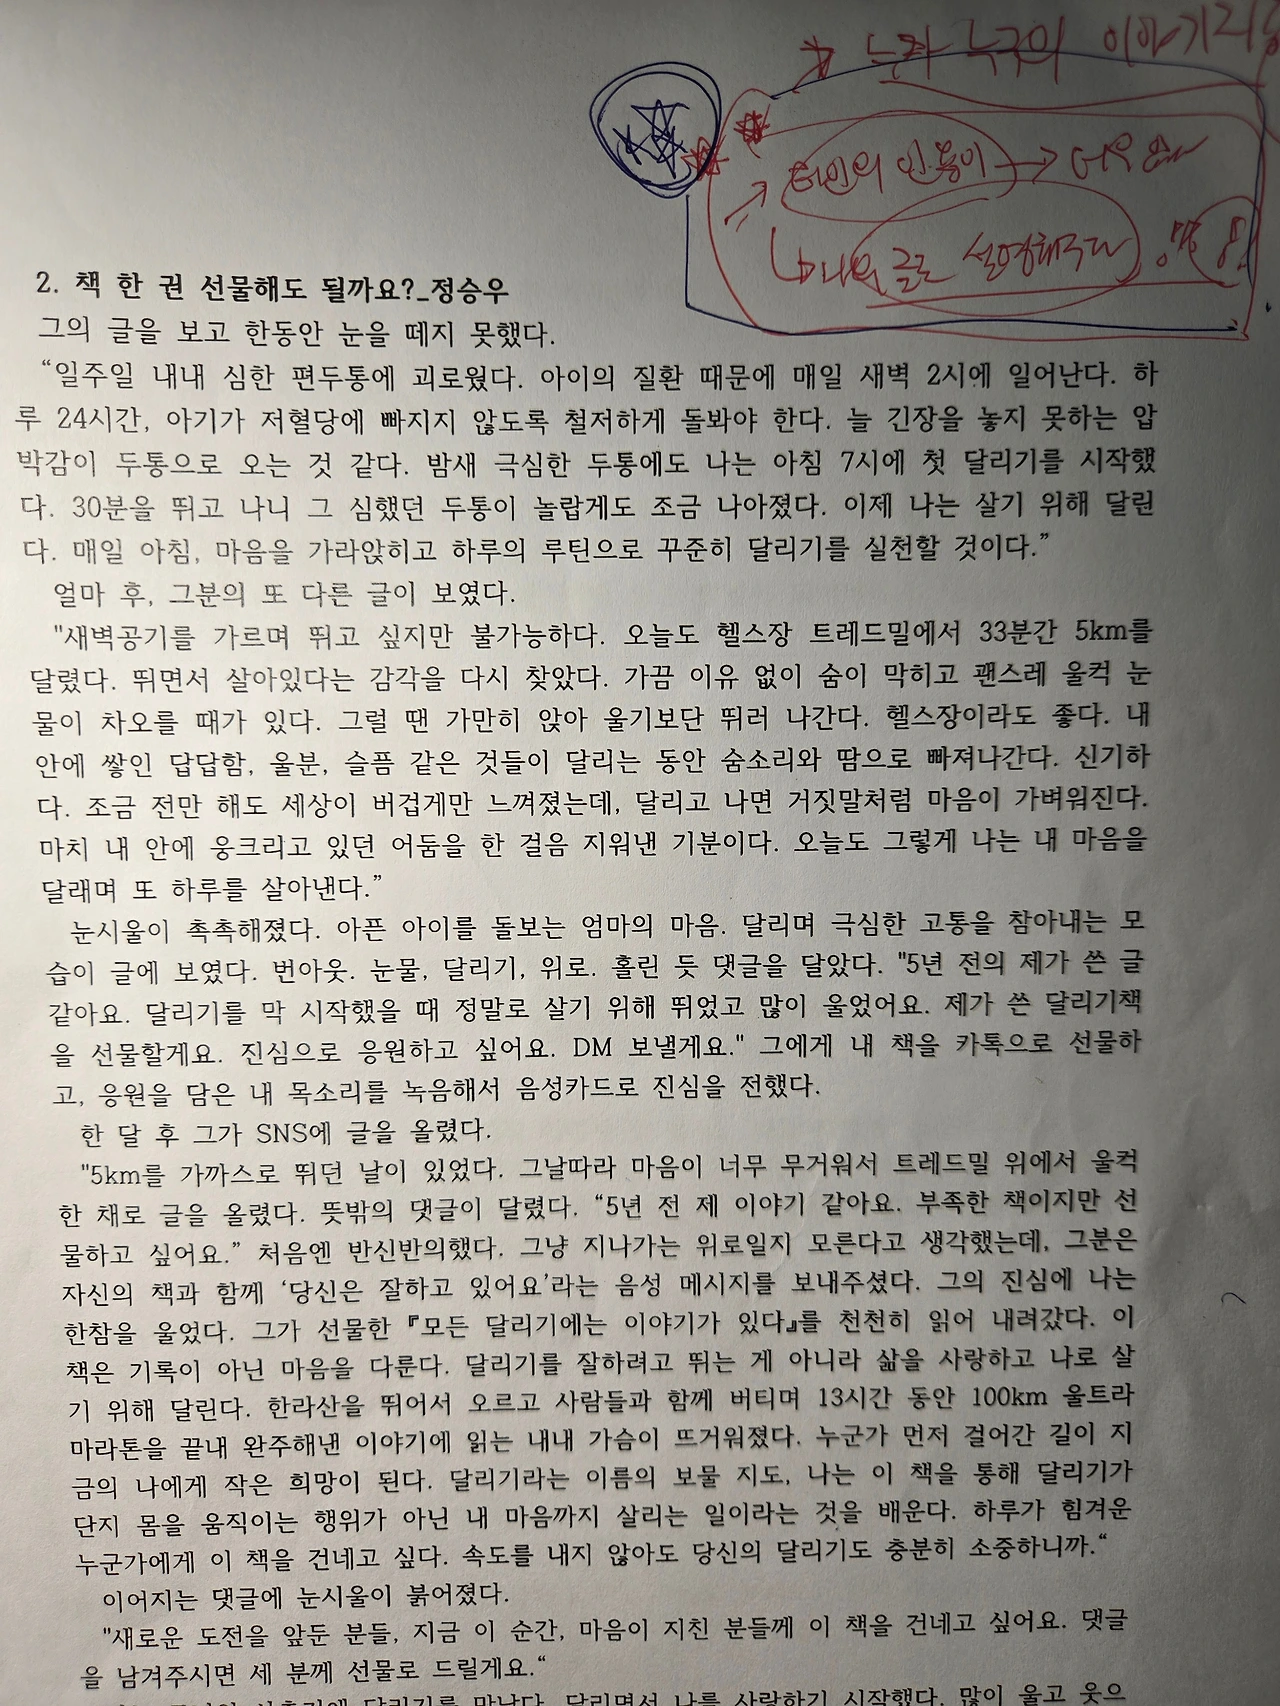 누가 누구의 이야기
타인의 인용이 → 너무
나의 글로 설명해주다
2. 책 한 권 선물해도 될까요?_정승우
그의 글을 보고 한동안 눈을 떼지 못했다.
“일주일 내내 심한 편두통에 괴로웠다. 아이의 질환 때문에 매일 새벽 2시에 일어난다. 하
루 24시간, 아기가 저혈당에 빠지지 않도록 철저하게 돌봐야 한다. 늘 긴장을 놓지 못하는 압
박감이 두통으로 오는 것 같다. 밤새 극심한 두통에도 나는 아침 7시에 첫 달리기를 시작했
다. 30분을 뛰고 나니 그 심했던 두통이 놀랍게도 조금 나아졌다. 이제 나는 살기 위해 달린
다. 매일 아침, 마음을 가라앉히고 하루의 루틴으로 꾸준히 달리기를 실천할 것이다.”
얼마 후, 그분의 또 다른 글이 보였다.
"새벽공기를 가르며 뛰고 싶지만 불가능하다. 오늘도 헬스장 트레드밀에서 33분간 5km를
달렸다. 뛰면서 살아있다는 감각을 다시 찾았다. 가끔 이유 없이 숨이 막히고 괜스레 울컥 눈
물이 차오를 때가 있다. 그럴 땐 가만히 앉아 울기보단 뛰러 나간다. 헬스장이라도 좋다. 내
안에 쌓인 답답함, 울분, 슬픔 같은 것들이 달리는 동안 숨소리와 땀으로 빠져나간다. 신기하
다. 조금 전만 해도 세상이 버겁게만 느껴졌는데, 달리고 나면 거짓말처럼 마음이 가벼워진다.
마치 내 안에 웅크리고 있던 어둠을 한 걸음 지워낸 기분이다. 오늘도 그렇게 나는 내 마음을
달래며 또 하루를 살아낸다.”
눈시울이 촉촉해졌다. 아픈 아이를 돌보는 엄마의 마음. 달리며 극심한 고통을 참아내는 모
습이 글에 보였다. 번아웃. 눈물, 달리기, 위로. 홀린 듯 댓글을 달았다. "5년 전의 제가 쓴 글
같아요. 달리기를 막 시작했을 때 정말로 살기 위해 뛰었고 많이 울었어요. 제가 쓴 달리기책
을 선물할게요. 진심으로 응원하고 싶어요. DM 보낼게요." 그에게 내 책을 카톡으로 선물하
고, 응원을 담은 내 목소리를 녹음해서 음성카드로 진심을 전했다.
한 달 후 그가 SNS에 글을 올렸다.
"5km를 가까스로 뛰던 날이 있었다. 그날따라 마음이 너무 무거워서 트레드밀 위에서 울컥
한 채로 글을 올렸다. 뜻밖의 댓글이 달렸다. “5년 전 제 이야기 같아요. 부족한 책이지만 선
물하고 싶어요.” 처음엔 반신반의했다. 그냥 지나가는 위로일지 모른다고 생각했는데, 그분은
자신의 책과 함께 ‘당신은 잘하고 있어요’라는 음성 메시지를 보내주셨다. 그의 진심에 나는
한참을 울었다. 그가 선물한 『모든 달리기에는 이야기가 있다』를 천천히 읽어 내려갔다. 이
책은 기록이 아닌 마음을 다룬다. 달리기를 잘하려고 뛰는 게 아니라 삶을 사랑하고 나로 살
기 위해 달린다. 한라산을 뛰어서 오르고 사람들과 함께 버티며 13시간 동안 100km 울트라
마라톤을 끝내 완주해낸 이야기에 읽는 내내 가슴이 뜨거워졌다. 누군가 먼저 걸어간 길이 지
금의 나에게 작은 희망이 된다. 달리기라는 이름의 보물 지도, 나는 이 책을 통해 달리기가
단지 몸을 움직이는 행위가 아닌 내 마음까지 살리는 일이라는 것을 배운다. 하루가 힘겨운
누군가에게 이 책을 건네고 싶다. 속도를 내지 않아도 당신의 달리기도 충분히 소중하니까.“
이어지는 댓글에 눈시울이 붉어졌다.
"새로운 도전을 앞둔 분들, 지금 이 순간, 마음이 지친 분들께 이 책을 건네고 싶어요. 댓글
을 남겨주시면 세 분께 선물로 드릴게요.“
달리기를 만났다. 달리면서 나를 사랑하기 시작했다. 많이 울고 웃으